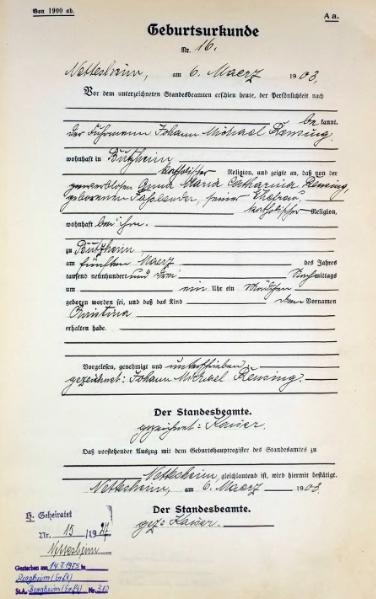 Von 1900 ab.
A a.
Geburtsurkunde
Nr. 16.
Nettesheim, am 6. Maerz 1903.
Vor dem unterzeichneten Standesbeamten erschien heute, der Persönlichkeit nach
be kannt,
der Fuhrmann Johann Michael
wohnhaft in Butzheim
katholischer Religion, und zeigte an, daß von der
gewerblosen Anna Maria Catharina
geborenen seiner Ehefrau,
katholischer Religion,
wohnhaft bei ihm.
zu Butzheim
am fünften Maerz des Jahres
tausend neunhundert und drei mittags
um ein Uhr ein Mädchen
geboren worden sei, und daß das Kind den Vornamen
Christina
erhalten habe.
Vorgelesen, genehmigt und unterschrieben
gezeichnet: Johann Michael
Der Standesbeamte.
gezeichnet: Kauer.
Daß vorstehender Auszug mit dem Geburtshauptregister des Standesamtes zu
Nettesheim, gleichlautend ist, wird hiermit bestätigt.
Nettesheim, am 6. Maerz 1903.
Der Standesbeamte.
gez: Kauer.
Geheiratet
Nr. 15 / 1927
Nettesheim
Gestorben am 14.7.1985 in
Bergheim (Erft)
St.A. Bergheim (Erft) Nr.